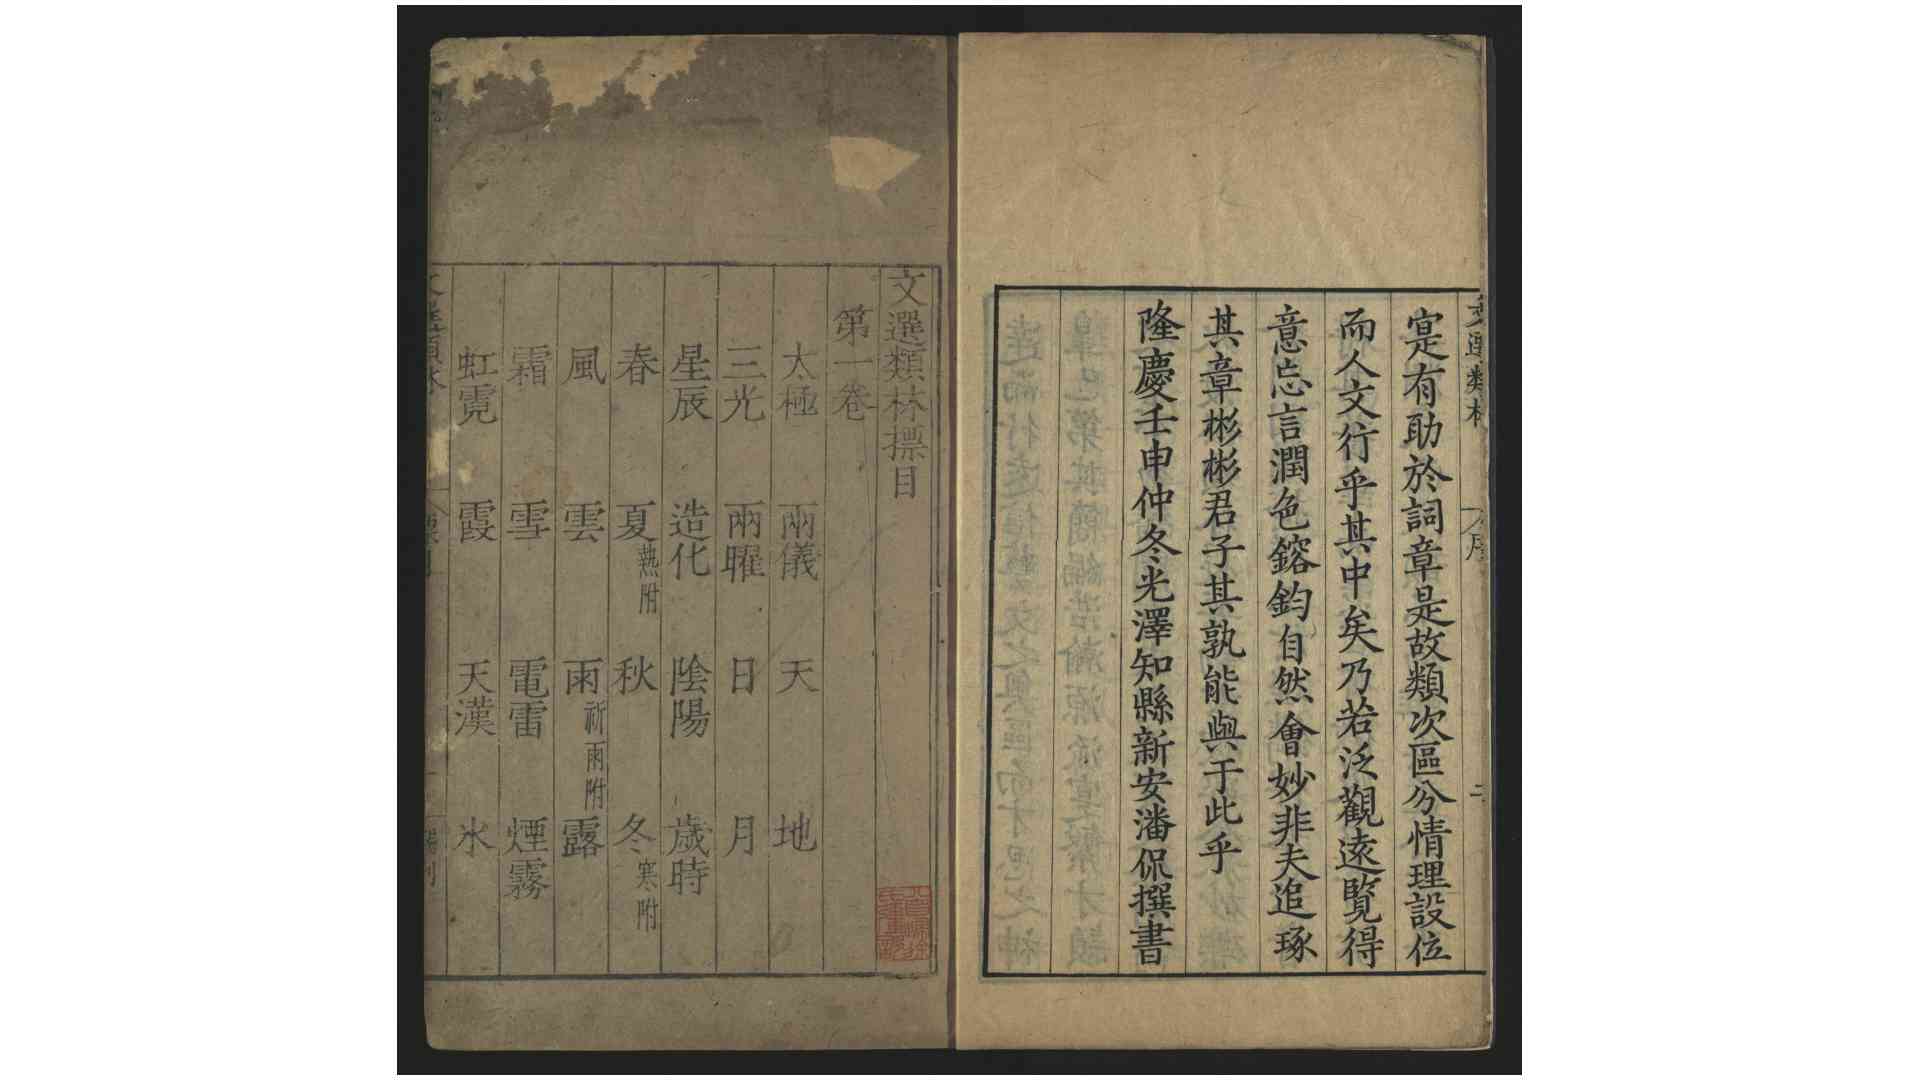 寔有助於詞章是故類次區分情理設位
而人文行乎其中矣乃若泛觀遠覽得
意忘言潤色鎔鈞自然會妙非夫追琢
其章彬彬君子其孰能與于此乎
隆慶壬申仲冬光澤知縣新安潘侃撰書
文選類林標目
第一卷
太極 兩儀 天 地
三光 兩曜 日 月
星辰 造化 陰陽 歲時
春 夏熱附 秋 冬寒附
風 雲 雨祈雨附 露
霜 雪 電雷 煙霧
虹霓 霞 天漢 氷